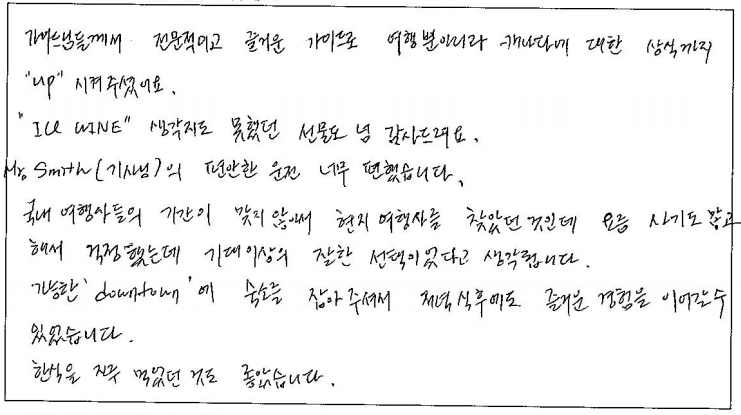 가이드님들께서 전문적이고 즐거운 가이드로 여행뿐아니라 캐나다에 대한 상식까지
"up" 시켜주셨어요.
"ICE WINE" 생각지도 못했던 선물도 넘 감사드려요.
Mr. Smith (기사님)의 편안한 운전 너무 편했습니다.
국내 여행사들의 기간이 맞지 않아서 현지 여행사를 찾았던 것인데 요즘 사기도 많고
해서 걱정했는데 기대이상의 잘한 선택이었다고 생각됩니다.
가능한 'downtown'에 숙소를 잡아 주셔서 저녁 식후에도 즐거운 경험을 이어갈 수
있었습니다.
한식을 자주 먹었던 것도 좋았습니다.